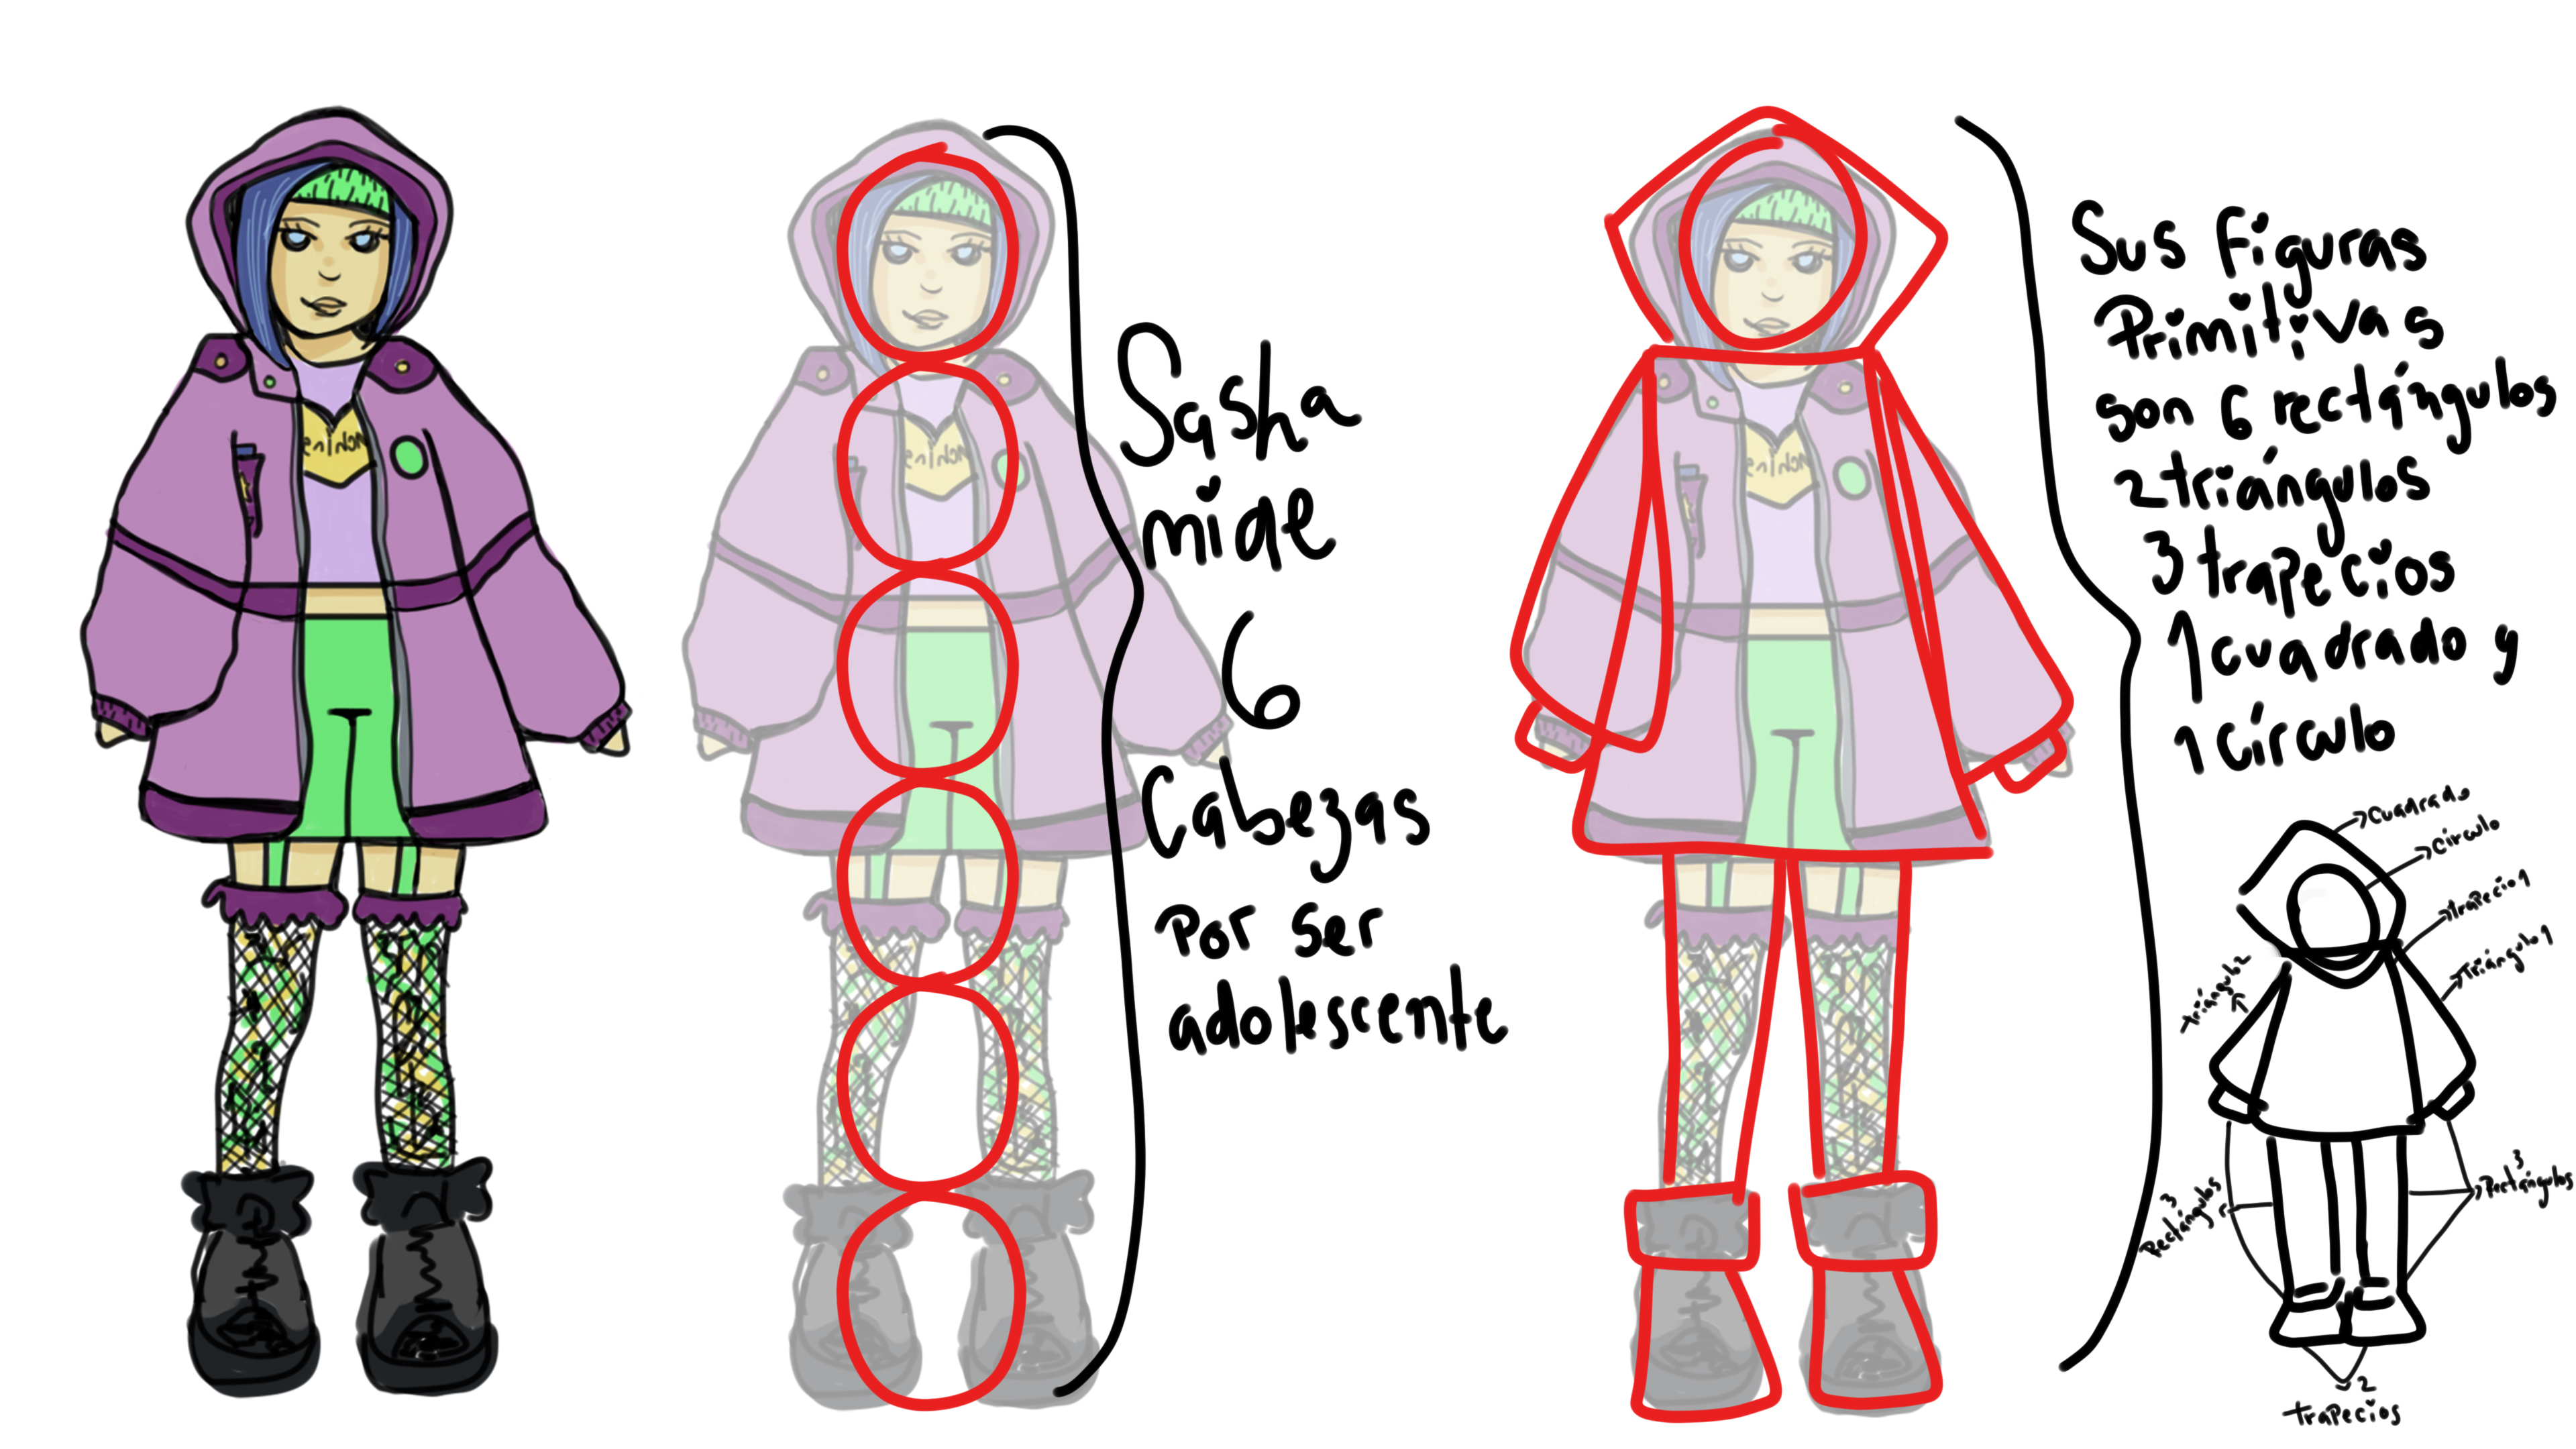 Sasha
mide
6
Cabezas
Por ser
adolescente
Sus Figuras
Primitivas
son 6 rectángulos
2 triángulos
3 trapecios
1 cuadrado y
1 círculo
Cuadrado
Círculo
trapecio 1
triángulo 1
triángulo 2
3
Rectángulos
3
Rectángulos
2
trapecios